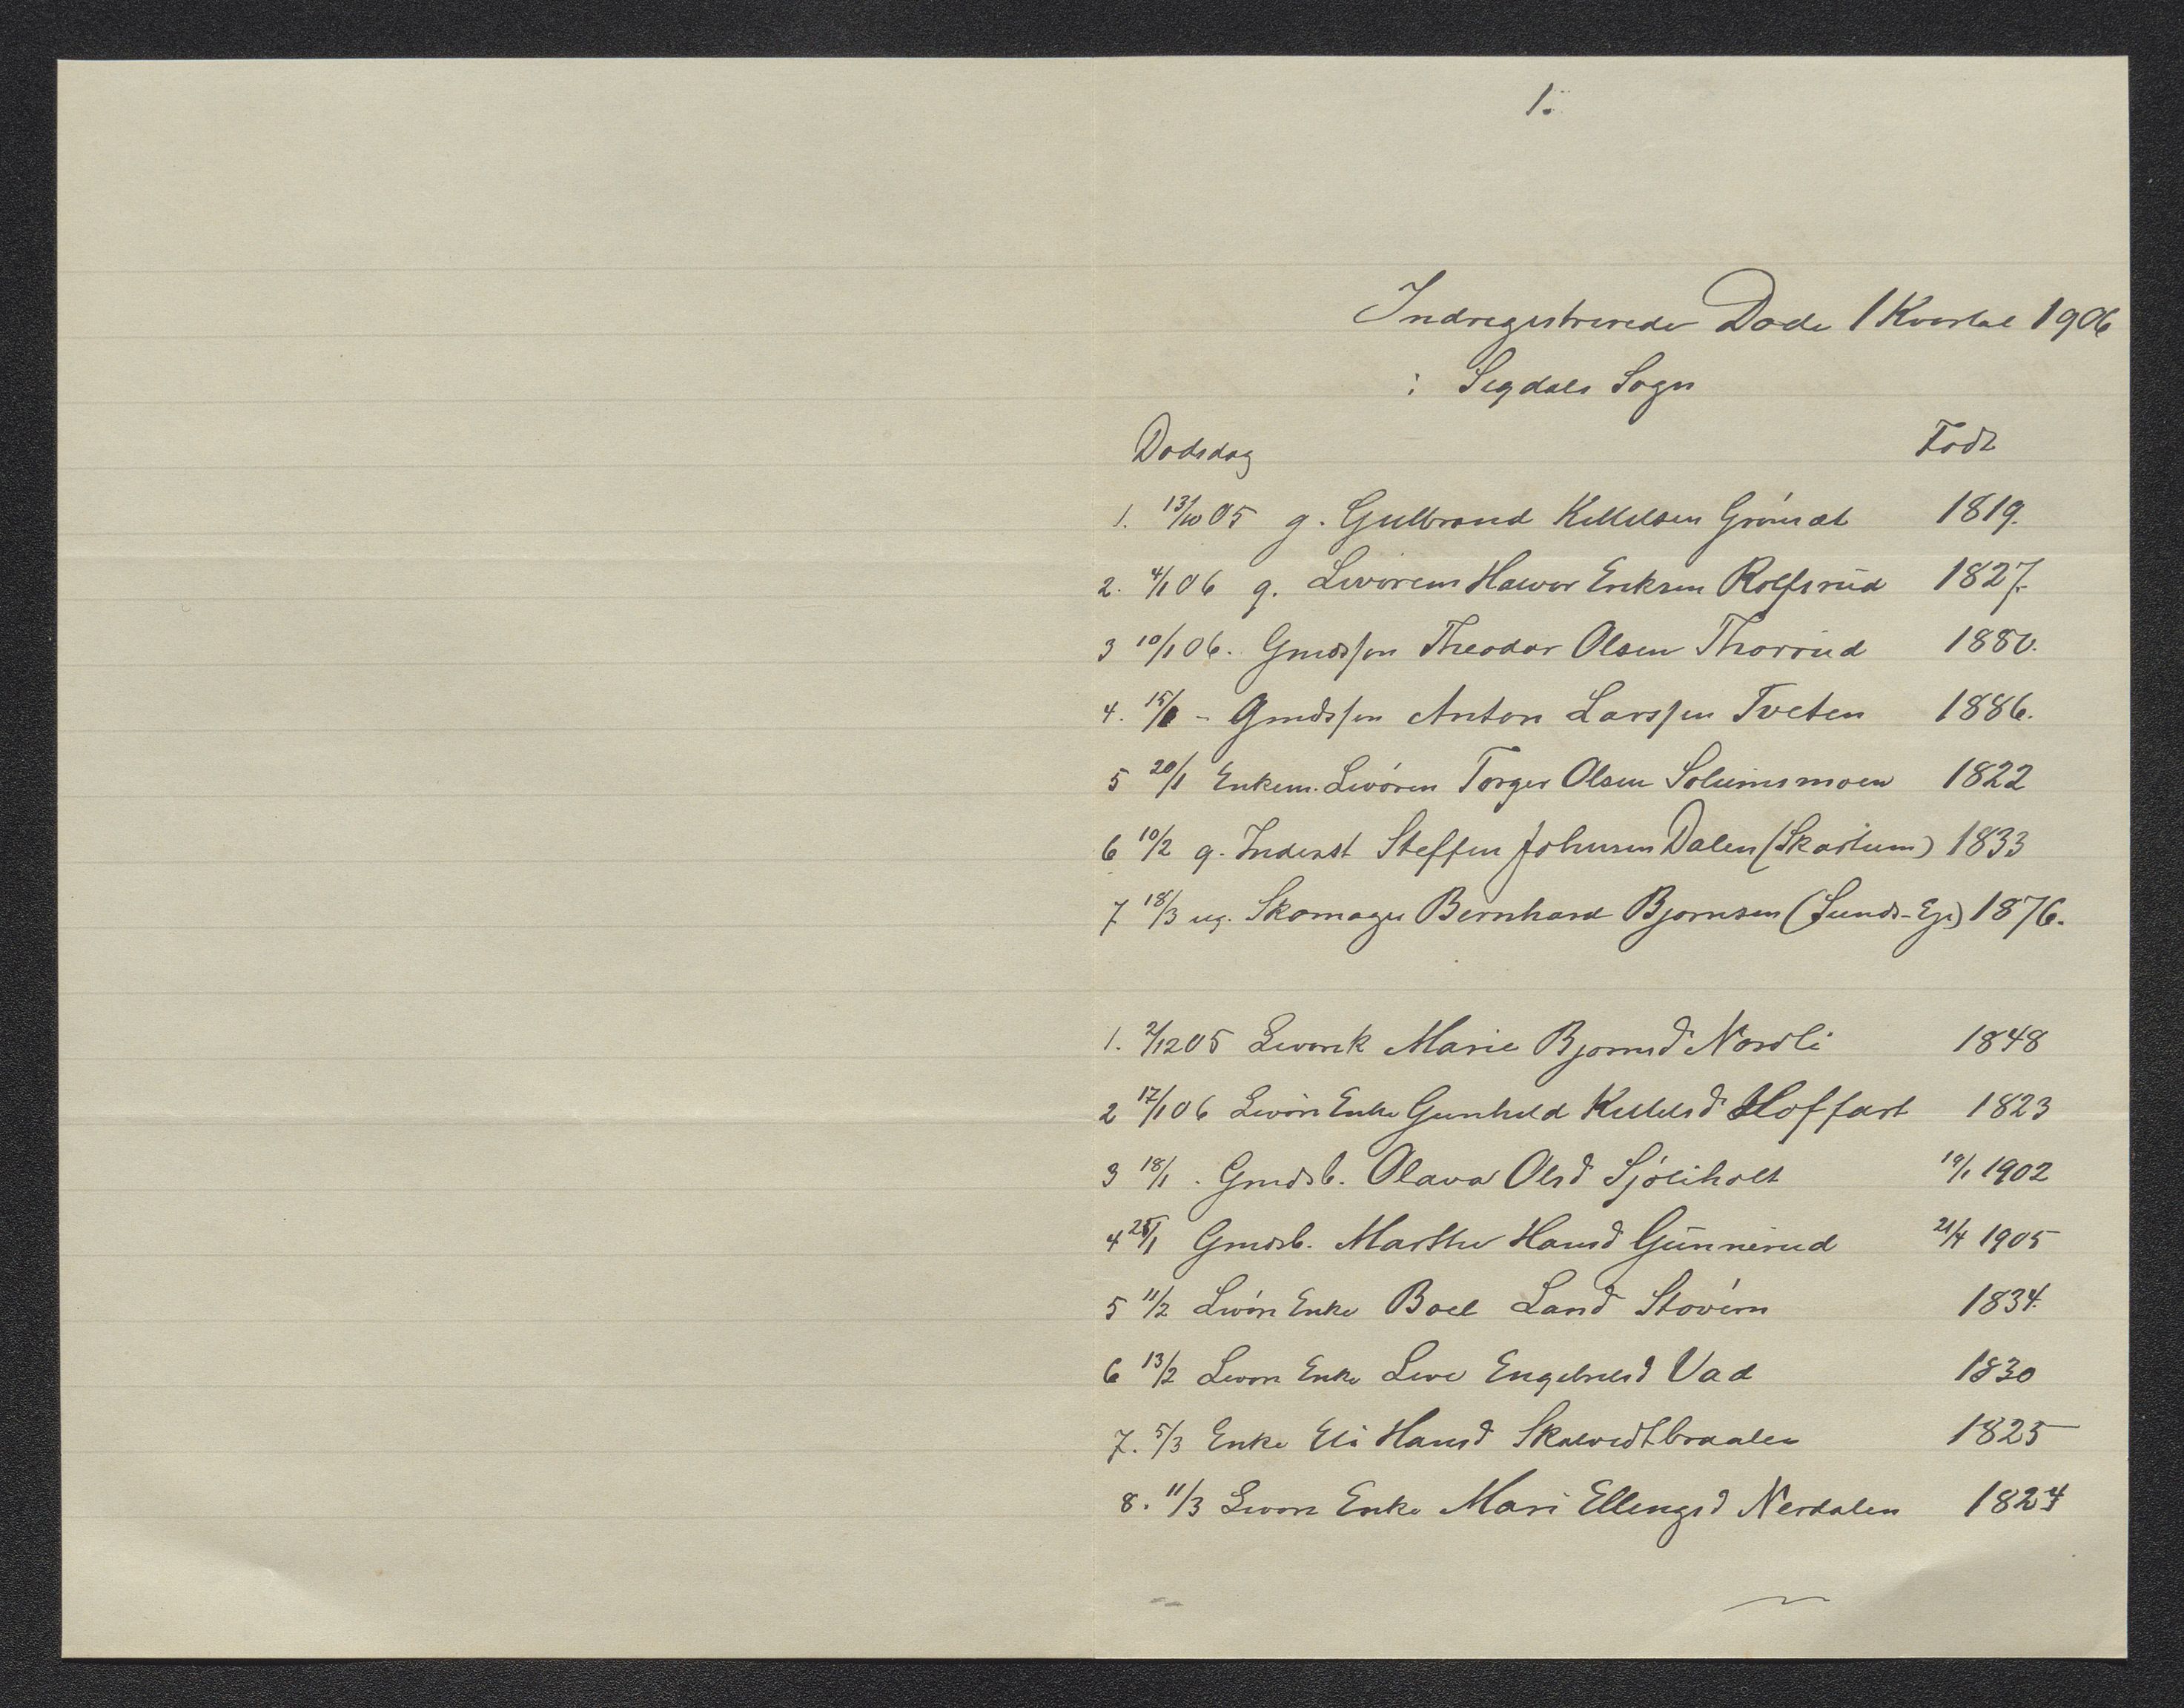 1.
Indregistrerede Døde 1 Kvartal 1906
i Sigdals Sogn
Dødsdag Født
1. 13/10 05 g. Gulbrand Kittelsen Grønsæt 1819.
2. 4/1 06 g. Livørem Halvor Eriksen Rolfsrud 1827.
3 10/1 06. Gmdssøn Theodor Olsen Thorrud 1880.
4. 15/1 - Gmdssøn Anton Larssen Tveten 1886.
5 20/1 Enkem. Livøren Torger Olsen Solumsmoen 1822
6 10/2 g. Inderst Steffen Johnsen Dalen (Skartum) 1833
7 18/3 ug. Skomager Bernhard Bjornsen (Sunds-Eje) 1876.
1. 2/12 05 Livørk Marie Bjornsd Nordli 1848
2 17/1 06 Livørs Enke Gunhild Kittelsd Hoffart 1823
3 18/1 . Gmdsb. Olava Olsd Sjøliholt 19/1 1902
4 25/1 Gmdsb. Marthe Hansd Gunnerud 21/4 1905
5 11/2 Livørs Enke Boel Larsd Stovern 1834.
6 13/2 Livørs Enke Live Engebretsd Vad 1830
7. 5/3 Enke Eli Hansd Skalvedtbraaten 1825
8. 11/3 Livørs Enke Mari Ellengsd Nerdalen 1824